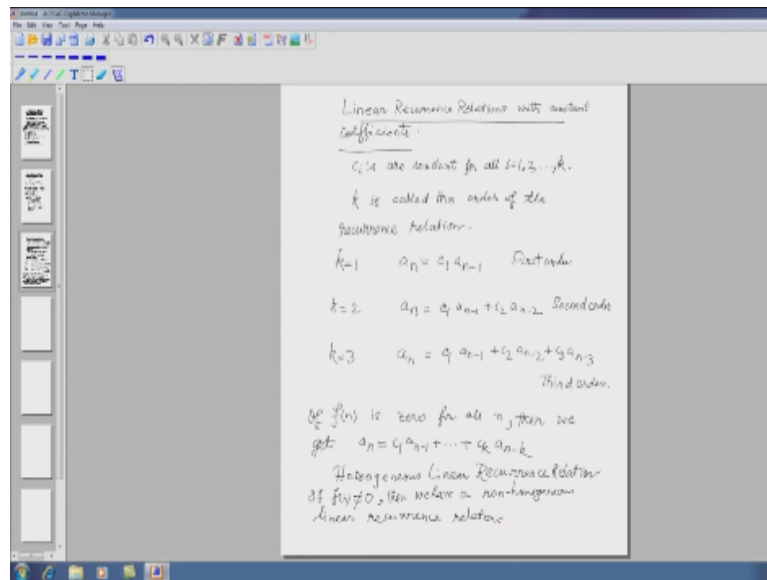 File Edit View Tool Page Help
Linear Recurrence Relations with constant
coefficients.
Ci's are constant for all i=1,2,...,k.
k is called the order of the
recurrence relation.
k=1 an = c1 an-1 First order
k=2 an = c1 an-1 + c2 an-2 Second order
k=3 an = c1 an-1 + c2 an-2 + c3 an-3
Third order.
If f(n) is zero for all n, then we
get an = c1 an-1 + ... + ck an-k
Homogeneous Linear Recurrence Relation
If f(n) ≠ 0, then we have a non-homogeneous
linear recurrence relation.